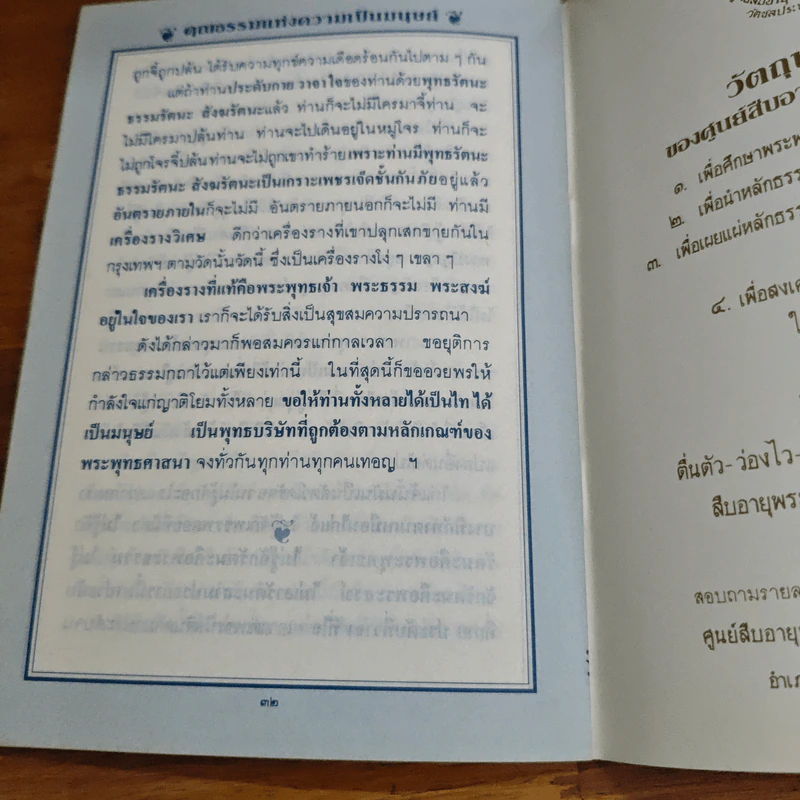 คุณธรรมแห่งความเป็นมนุษย์
ถูกจี้ถูกปล้น ได้รับความทุกข์ความเดือดร้อนกันไปตาม ๆ กัน
แต่ถ้าท่านประดับกาย วาจา ใจของท่านด้วยพุทธรัตนะ
ธรรมรัตนะ สังฆรัตนะแล้ว ท่านก็จะไม่มีใครมาจี้ท่าน จะ
ไม่มีใครมาปล้นท่าน ท่านจะไปเดินอยู่ในหมู่โจร ท่านก็จะ
ไม่ถูกโจรจี้ปล้นท่านจะไม่ถูกเขาทำร้ายเพราะท่านมีพุทธรัตนะ
ธรรมรัตนะ สังฆรัตนะเป็นเกราะเพชรเจ็ดชั้นกันภัยอยู่แล้ว
อันตรายภายในก็จะไม่มี อันตรายภายนอกก็จะไม่มี ท่านมี
เครื่องรางวิเศษ ดีกว่าเครื่องรางที่เขาปลุกเสกขายกันใน
กรุงเทพฯ ตามวัดนั้นวัดนี้ ซึ่งเป็นเครื่องรางโง่ ๆ เขลา ๆ
เครื่องรางที่แท้คือพระพุทธเจ้า พระธรรม พระสงฆ์
อยู่ในใจของเรา เราก็จะได้รับสิ่งเป็นสุขสมความปรารถนา
ดังได้กล่าวมาก็พอสมควรแก่กาลเวลา ขอยุติการ
กล่าวธรรมกถาไว้แต่เพียงเท่านี้ ในที่สุดนี้ก็ขออวยพรให้
กำลังใจแก่ญาติโยมทั้งหลาย ขอให้ท่านทั้งหลายได้เป็นไท ได้
เป็นมนุษย์ เป็นพุทธบริษัทที่ถูกต้องตามหลักเกณฑ์ของ
พระพุทธศาสนา จงทั่วกันทุกท่านทุกคนเทอญ ฯ
๓๒
วัตถุ
ของศูนย์สืบอา
๑. เพื่อศึกษาพระพ
๒. เพื่อนำหลักธรร
๓. เพื่อเผยแผ่หลักธรร
๔. เพื่อสงเค
ใ
ตื่นตัว-ว่องไว-
สืบอายุพระ
สอบถามรายล
ศูนย์สืบอายุพ
อำเภ